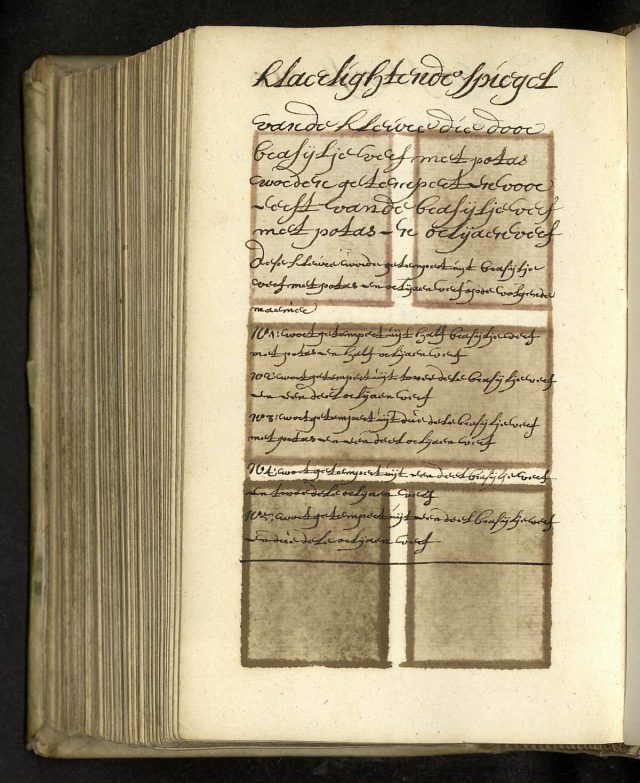 klaerlightende Spiegel
vande kleuren die door
brasijlje verf met potas
worden getempert en voor
eerst vande brasijlje verf
met potas en orlijaen verf
Dese kleure worde getempert uijt brasijlje
verf met potas en orlijaen verf op de volgende
manier
No 1: wort getempert uijt half brasijlje verf
met potas en half orlijaen verf
No 2: wort getempert uijt twee dele brasijlje verf
en een deel orlijaen verf
No 3: wort getempert uijt drie dele brasijlje verf
met potas en een deel orlijaen verf
No 4: wort getempert uijt een deel brasijlje verf
en twee dele orlijaen verf
No 5: wort getempert uijt een deel brasijlje verf
en drie dele orlijaen verf